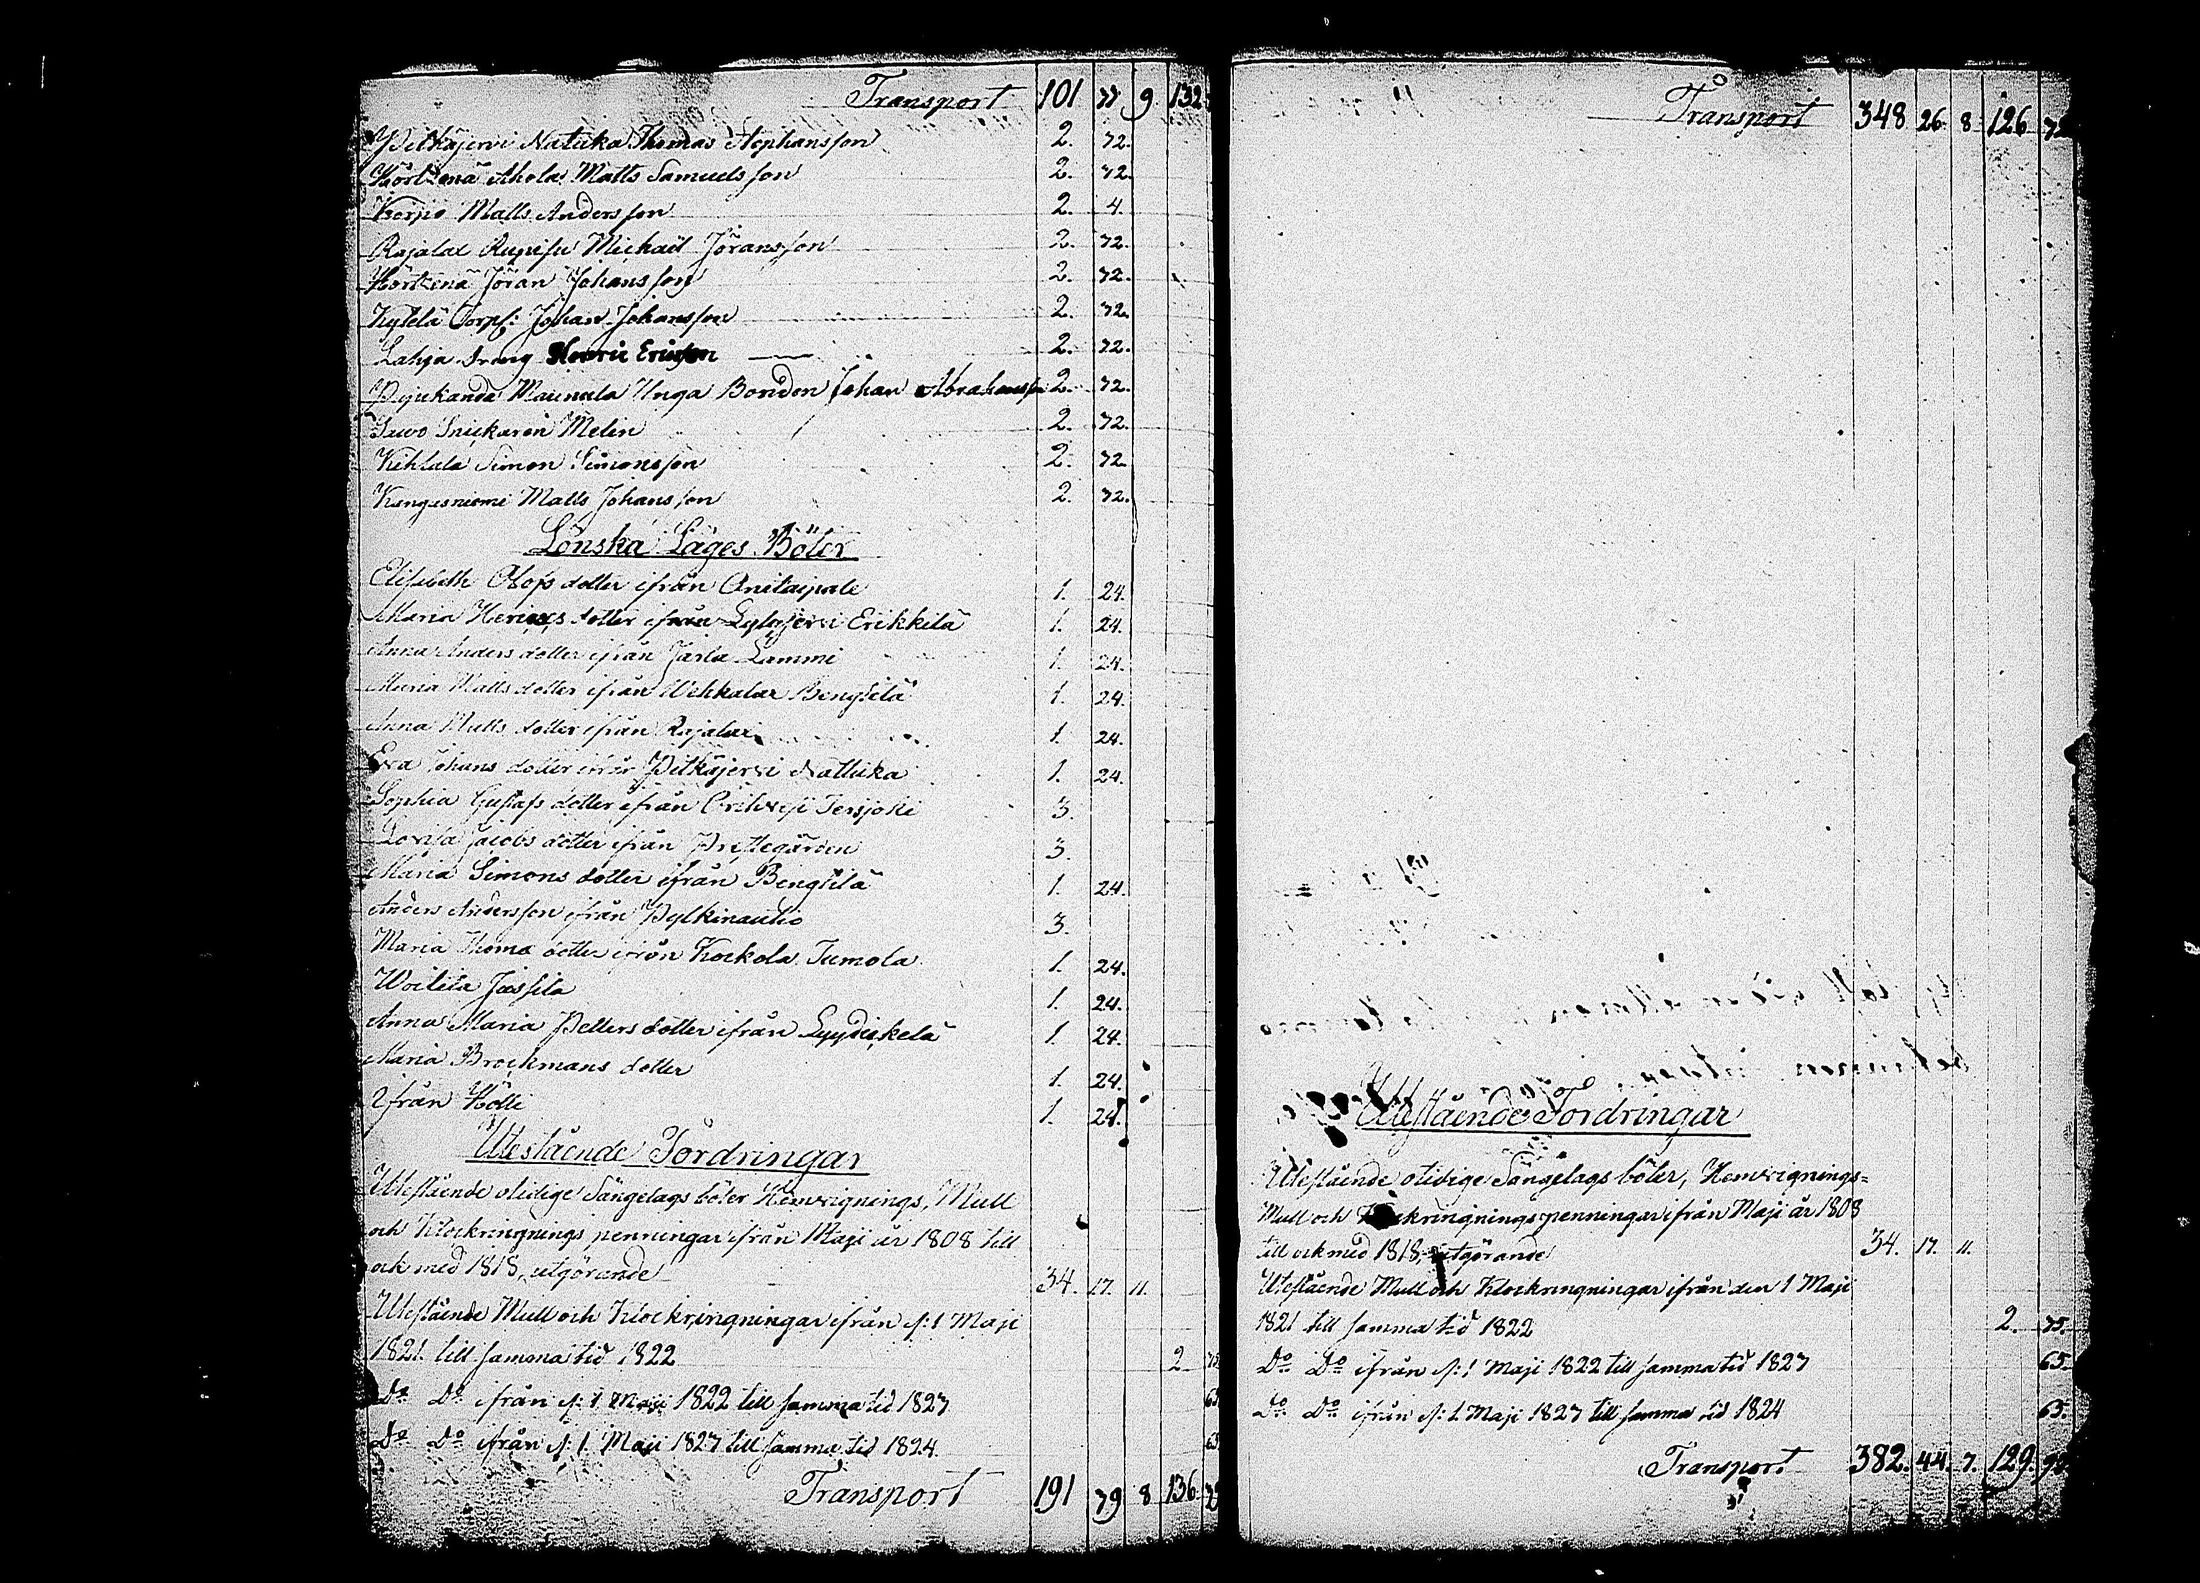 Transport 101 77 9 132
Pitkäjervi Natuka Thomas Stephansson 2. 72.
Körtzenä Ahola Matts Samuelsson 2. 72.
Korpo Matts Andersson 2. 4.
Rajalax Rupisu Michaël Jöransson 2. 72.
Körtzenä Jöran Johansson 2. 72.
Kylelä Torps: Johan Johansson 2. 72.
Lahja Dräng Henric Ericsson 2. 72.
Maunula Unga Bonden Johan Abrahamsson 2. 72.
Sawo Snickaren Melin 2. 72.
Simon Simonsson 2. 72.
Kangasniemi Matts Johansson 2. 72.
Lönska Läges Böter
Elisabeth Olofs dotter ifrån Onitaipale 1. 24.
Maria Henrics dotter ifrån Lylyjervi Erikkilä 1. 24.
Anna Anders dotter ifrån Jarla Lammi 1. 24.
Maria Matts dotter ifrån Wehkalax Bengtilä 1. 24.
Anna Matts dotter ifrån Rajalax 1. 24.
Eva Johans dotter ifrån Pitkäjervi Nattuka 1. 24.
Sophia Gustafs dotter ifrån Orihvesi Tersjoki 3.
Lovisa Jacobs dotter ifrån Prestegården 3.
Maria Simons dotter ifrån Bengtilä 1. 24.
Anders Andersson ifrån Pylkinautio 3.
Maria Thoms dotter ifrån Kockola Tumola 1. 24.
Woitila Jussila 1. 24.
Anna Maria Petters dotter ifrån Lyydickelä 1. 24.
Maria Brockmans dotter 1. 24.
Ifrån Kölli 1. 24.
Utestående Fordringar
Utestående otidige Sängelags böter Hemvignings, Mull
och Klockringnings penningar ifrån Maji år 1808 till
och med 1818, utgörande 34. 17. 11.
Utestående Mull och Klockringningar ifrån d: 1 Maji
1821 till samma tid 1822 2 75
Do Do ifrån d: 1 Maji 1822 till samma tid 1823 65
Do Do ifrån d: 1 Maji 1823 till samma tid 1824. 65
Transport 191 79 8 136 79
Transport 348 26 8 126 72
Utestående Fordringar
Utestående otidige Sängelags böter, Hemvignings=
Mull och Klockringnings penningar ifrån Maji år 1808
till och med 1818, utgörande 34. 17. 11.
Utestående Mull och Klockringningar ifrån den 1 Maji
1821 till samma tid 1822 2. 75.
Do Do ifrån d: 1 Maji 1822 till samma tid 1823 65.
Do Do ifrån d: 1 Maji 1823 till samma tid 1824 65.
Transport 382. 44. 7. 129.